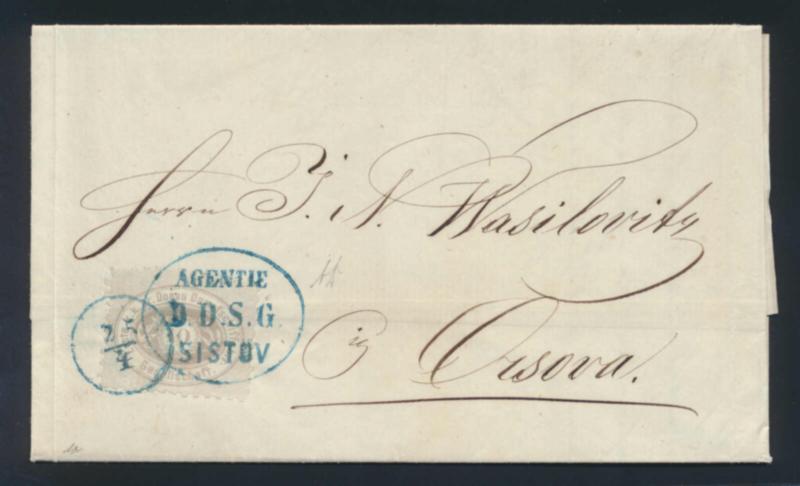 Herrn J. N. Wasilovits
AGENTIE
D.D.S.G.
SISTOV
25/4
in Orsova.